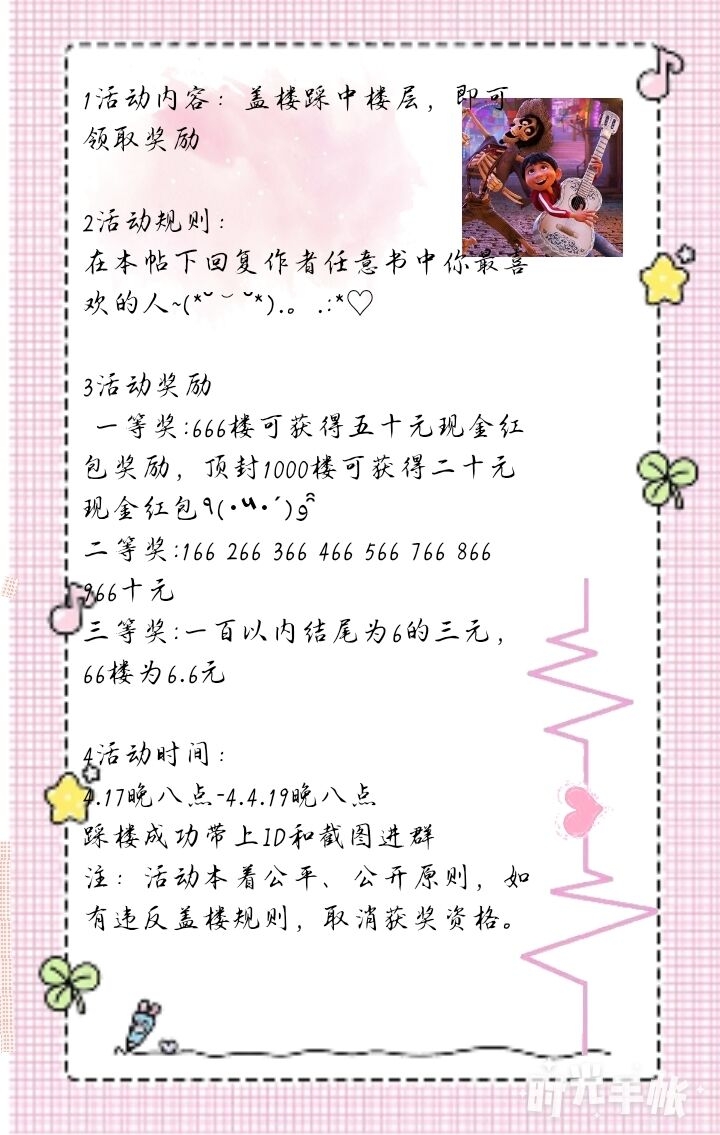 1活动内容：盖楼踩中楼层，即可
领取奖励
2活动规则：
在本帖下回复作者任意书中你最喜
欢的人~(*˘︶˘*).。.:*♡
3活动奖励
一等奖:666楼可获得五十元现金红
包奖励，顶封1000楼可获得二十元
现金红包٩(•̤̀ᵕ•̤́๑)
二等奖:166 266 366 466 566 766 866
966十元
三等奖:一百以内结尾为6的三元，
66楼为6.6元
4活动时间：
4.17晚八点-4.4.19晚八点
踩楼成功带上ID和截图进群
注：活动本着公平、公开原则，如
有违反盖楼规则，取消获奖资格。
时光手帐